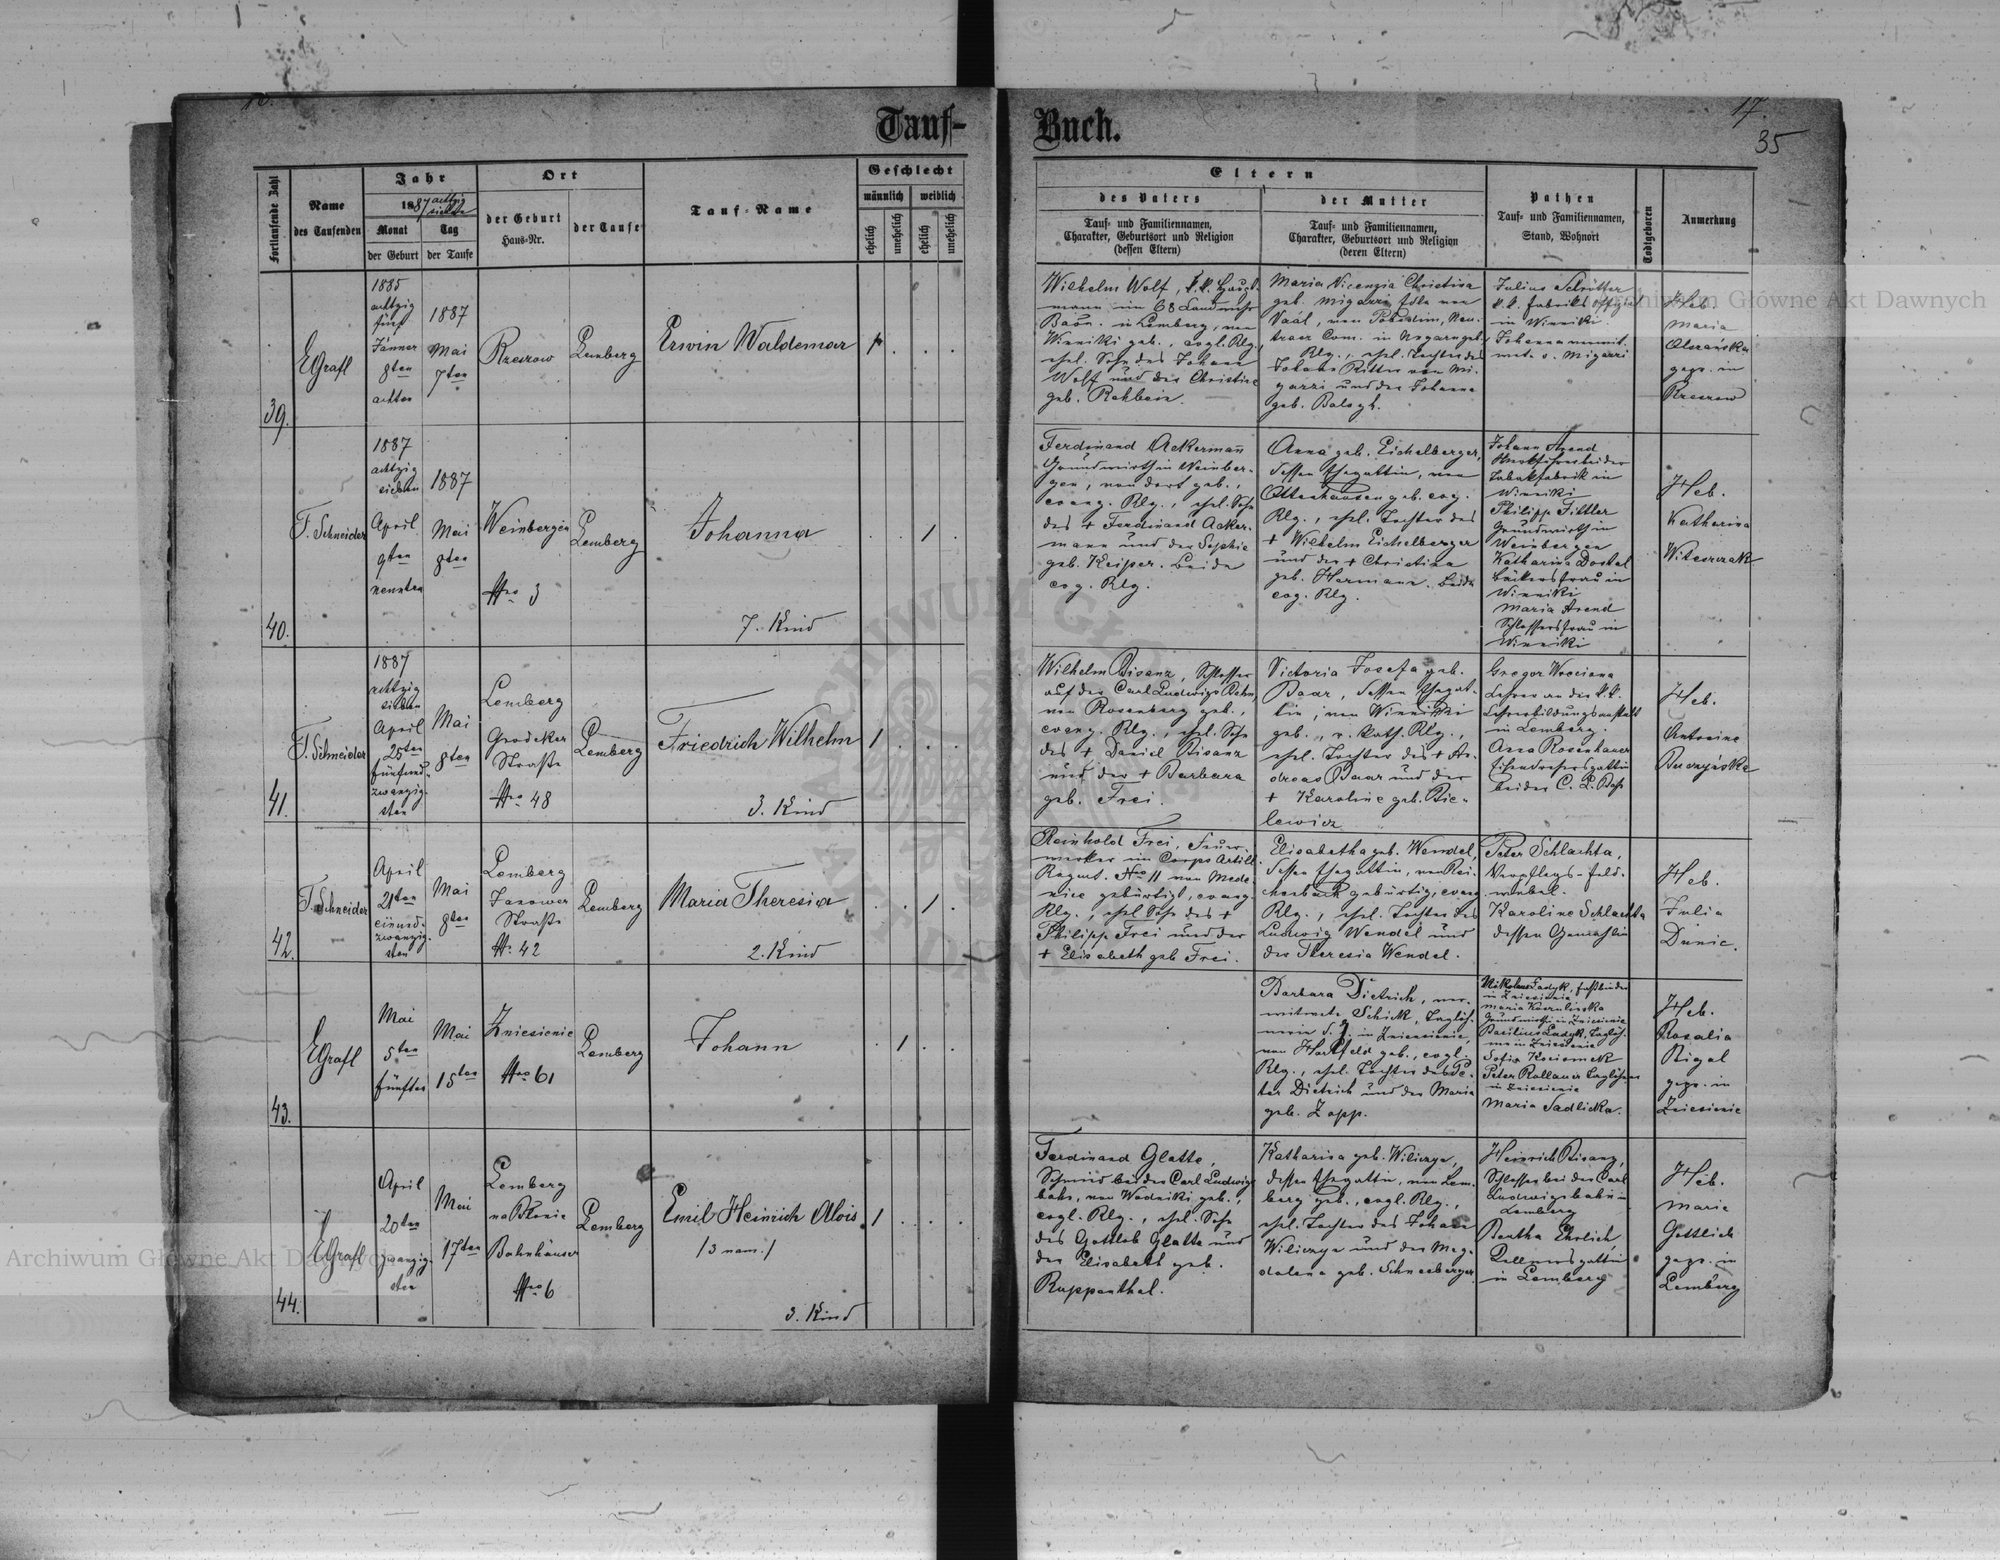 16.
Tauf-
Buch.
17.
35
Fortlaufende Zahl
Name
des Taufenden
Jahr
1887 achtzig
sieben
Monat
der Geburt
Tag
der Taufe
Ort
der Geburt
Haus-Nr.
der Taufe
Tauf-Name
Geschlecht
männlich
weiblich
ehelich
unehelich
ehelich
unehelich
Eltern
des Vaters
Tauf- und Familiennamen,
Charakter, Geburtsort und Religion
(dessen Eltern)
der Mutter
Tauf- und Familiennamen,
Charakter, Geburtsort und Religion
(deren Eltern)
Pathen
Tauf- und Familiennamen,
Stand, Wohnort
Todtgeboren
Anmerkung
39.
EGrafl
1885
achtzig
fünf
Jänner
8ten
achten
1887
Mai
7ten
Rzeszow
Lemberg
Erwin Waldemar
Wilhelm Wolf, k.k. Haupt-
mann im 68 Landwehr
Baon. in Lemberg, von
Winniki geb., evgl. Rlg.,
ehel. Sohn des Johann
Wolf und der Christine
geb. Rehbein.
Maria Vicenzia Christina
geb. Migazzi Edle von
Vaál, von
Com. in Ungarn geb.
Rlg., ehel. Tochter des
Johann Ritter von Mi-
gazzi und der Johanna
geb. Balogh.
Julius Schrötter
k.k. Fabriks Offizial
in Winniki.
Johanna
v. Migazzi
Heb.
Maria
gegr. in
Rzeszow
40.
F. Schneider
1887
achtzig
sieben
April
9ten
neunten
1887
Mai
8ten
Weinbergen
Nro 3
Lemberg
Johanna
1
7. Kind
Ferdinand Ackermann
Grundwirth in Weinber-
gen, von dort geb.,
evang. Rlg., ehel. Sohn
des + Ferdinand Acker-
mann und der Sophie
geb. Keiper. beide
evg. Rlg.
Anna geb. Eichelberger,
dessen Ehegattin, von
Ottenhausen geb. evg.
Rlg., ehel. Tochter des
+ Wilhelm Eichelberger
und der + Christina
geb. Hermann. beide
evg. Rlg.
Johann Arend
Werkführer bei der
Tabakfabrik in
Winniki
Philipp Fittler
Grundwirth in
Weinbergen
Katharina Dostal
Bäckersfrau in
Winniki
Maria Arend
Schlossersfrau in
Winniki
Heb.
Katharina
Witeszczak
41.
F. Schneider
1887
achtzig
sieben
April
25ten
fünfund-
zwanzig-
sten
Mai
8ten
Lemberg
Grodeker
Straße
Nro 48
Lemberg
Friedrich Wilhelm
1
3. Kind
Wilhelm Bisanz, Schlosser
auf der Carl Ludwigs Bahn,
von Rosenberg geb.,
evang. Rlg., ehel. Sohn
des + Daniel Bisanz
und der + Barbara
geb. Frei.
Victoria Josefa geb.
Baar, dessen Ehegat-
tin, von Winniki
geb., r. kath. Rlg.,
ehel. Tochter des + An-
dreas Baar und der
+ Karoline geb. Bie-
lewicz
Gregor Wreciona
Lehrer an der k.k.
Lehrerbildungsanstalt
in Lemberg.
Anna Rosenhauer
Eisendrehersgattin
bei der C. L. Bahn
Heb.
Antonine
Buczyńska
42.
F. Schneider
April
21ten
einund-
zwanzig-
sten
Mai
8ten
Lemberg
Janower
Straße
Nr. 42
Lemberg
Maria Theresia
1
2. Kind
Reinhold Frei, Feuer-
werker im Corps Artill.
Regmt. Nro 11 von Mede-
nice gebürtigt, evang.
Rlg., ehel. Sohn des +
Philipp Frei und der
+ Elisabeth geb. Frei.
Elisabetha geb. Wendel,
dessen Ehegattin, von Rei-
chenbach gebürtig, evang.
Rlg., ehel. Tochter des
Ludwig Wendel und
der Theresia Wendel.
Peter Schlachta,
Verpflegs-Feld-
webel.
Karoline Schlachta
dessen Gemahlin
Heb.
Julia
Dunic.
43.
EGrafl
Mai
5ten
fünften
Mai
15ten
Zniesienie
Nro 61
Lemberg
Johann
1
Barbara Dietrich, ver-
witwete Schick, Taglöh-
nerin d. Z. in Zniesienie,
von Hartfeld geb., evgl.
Rlg., ehel. Tochter des Pe-
ter Dietrich und der Maria
geb. Zopp.
Nikolaus Fadyk, Faßbinder
in Zniesienie
Maria
Grundwirthin in Zniesienie
Basilius Ladyk, Taglöh-
ner in Zniesienie
Sofia
Peter Rollauer Taglöhner
in Zniesienie
Maria Sadlicka.
Heb.
Rosalia
Rigel
gegr. in
Zniesienie
44.
EGrafl
April
20ten
zwanzig-
sten
Mai
17ten
Lemberg
na Błonie
Bahnhäuser
Nro 6
Lemberg
Emil Heinrich Alois
/3 nam./
1
3. Kind
Ferdinand Glatte,
Schmied bei der Carl Ludwigs
bahn, von Wodniki geb.,
evgl. Rlg., ehel. Sohn
des Gottlob Glatte und
der Elisabeth geb.
Ruppenthal.
Katharina geb. Wiliczya,
dessen Ehegattin, von Lem-
berg geb., evgl. Rlg.,
ehel. Tochter des Johann
Wiliczya und der Mag-
dalena geb. Schneeberger
Heinrich Bisanz,
Schlosser bei der Carl
Ludwigsbahn in
Lemberg
Bertha Ehrlich
Kellnersgattin
in Lemberg
Heb.
Marie
Gottlieb
gegr. in
Lemberg
Archiwum Główne Akt Dawnych
Archiwum Główne Akt Dawnych